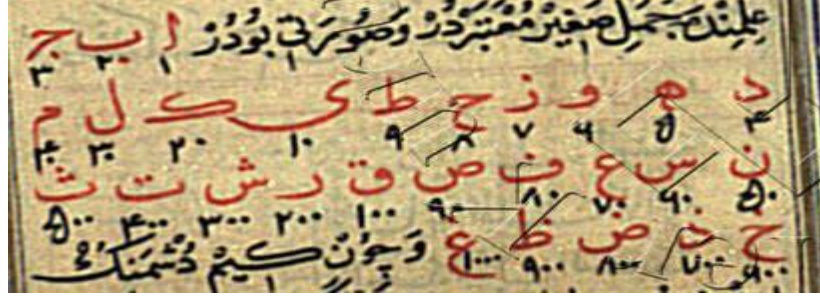 علمنده جمل صغير معتبردر وصورتی بودر ا ب ج
١ ٢ ٣
د ه و ز ح ط ی ک ل م
۴ ۵ ۶ ٧ ٨ ٩ ١٠ ٢٠ ٣٠ ۴٠
ن س ع ف ص ق ر ش ت ث
۵٠ ۶٠ ٧٠ ٨٠ ٩٠ ١٠٠ ٢٠٠ ٣٠٠ ۴٠٠ ۵٠٠
خ ذ ض ظ غ وچون كيم دشمنك
۶٠٠ ٧٠٠ ٨٠٠ ٩٠٠ ١٠٠٠